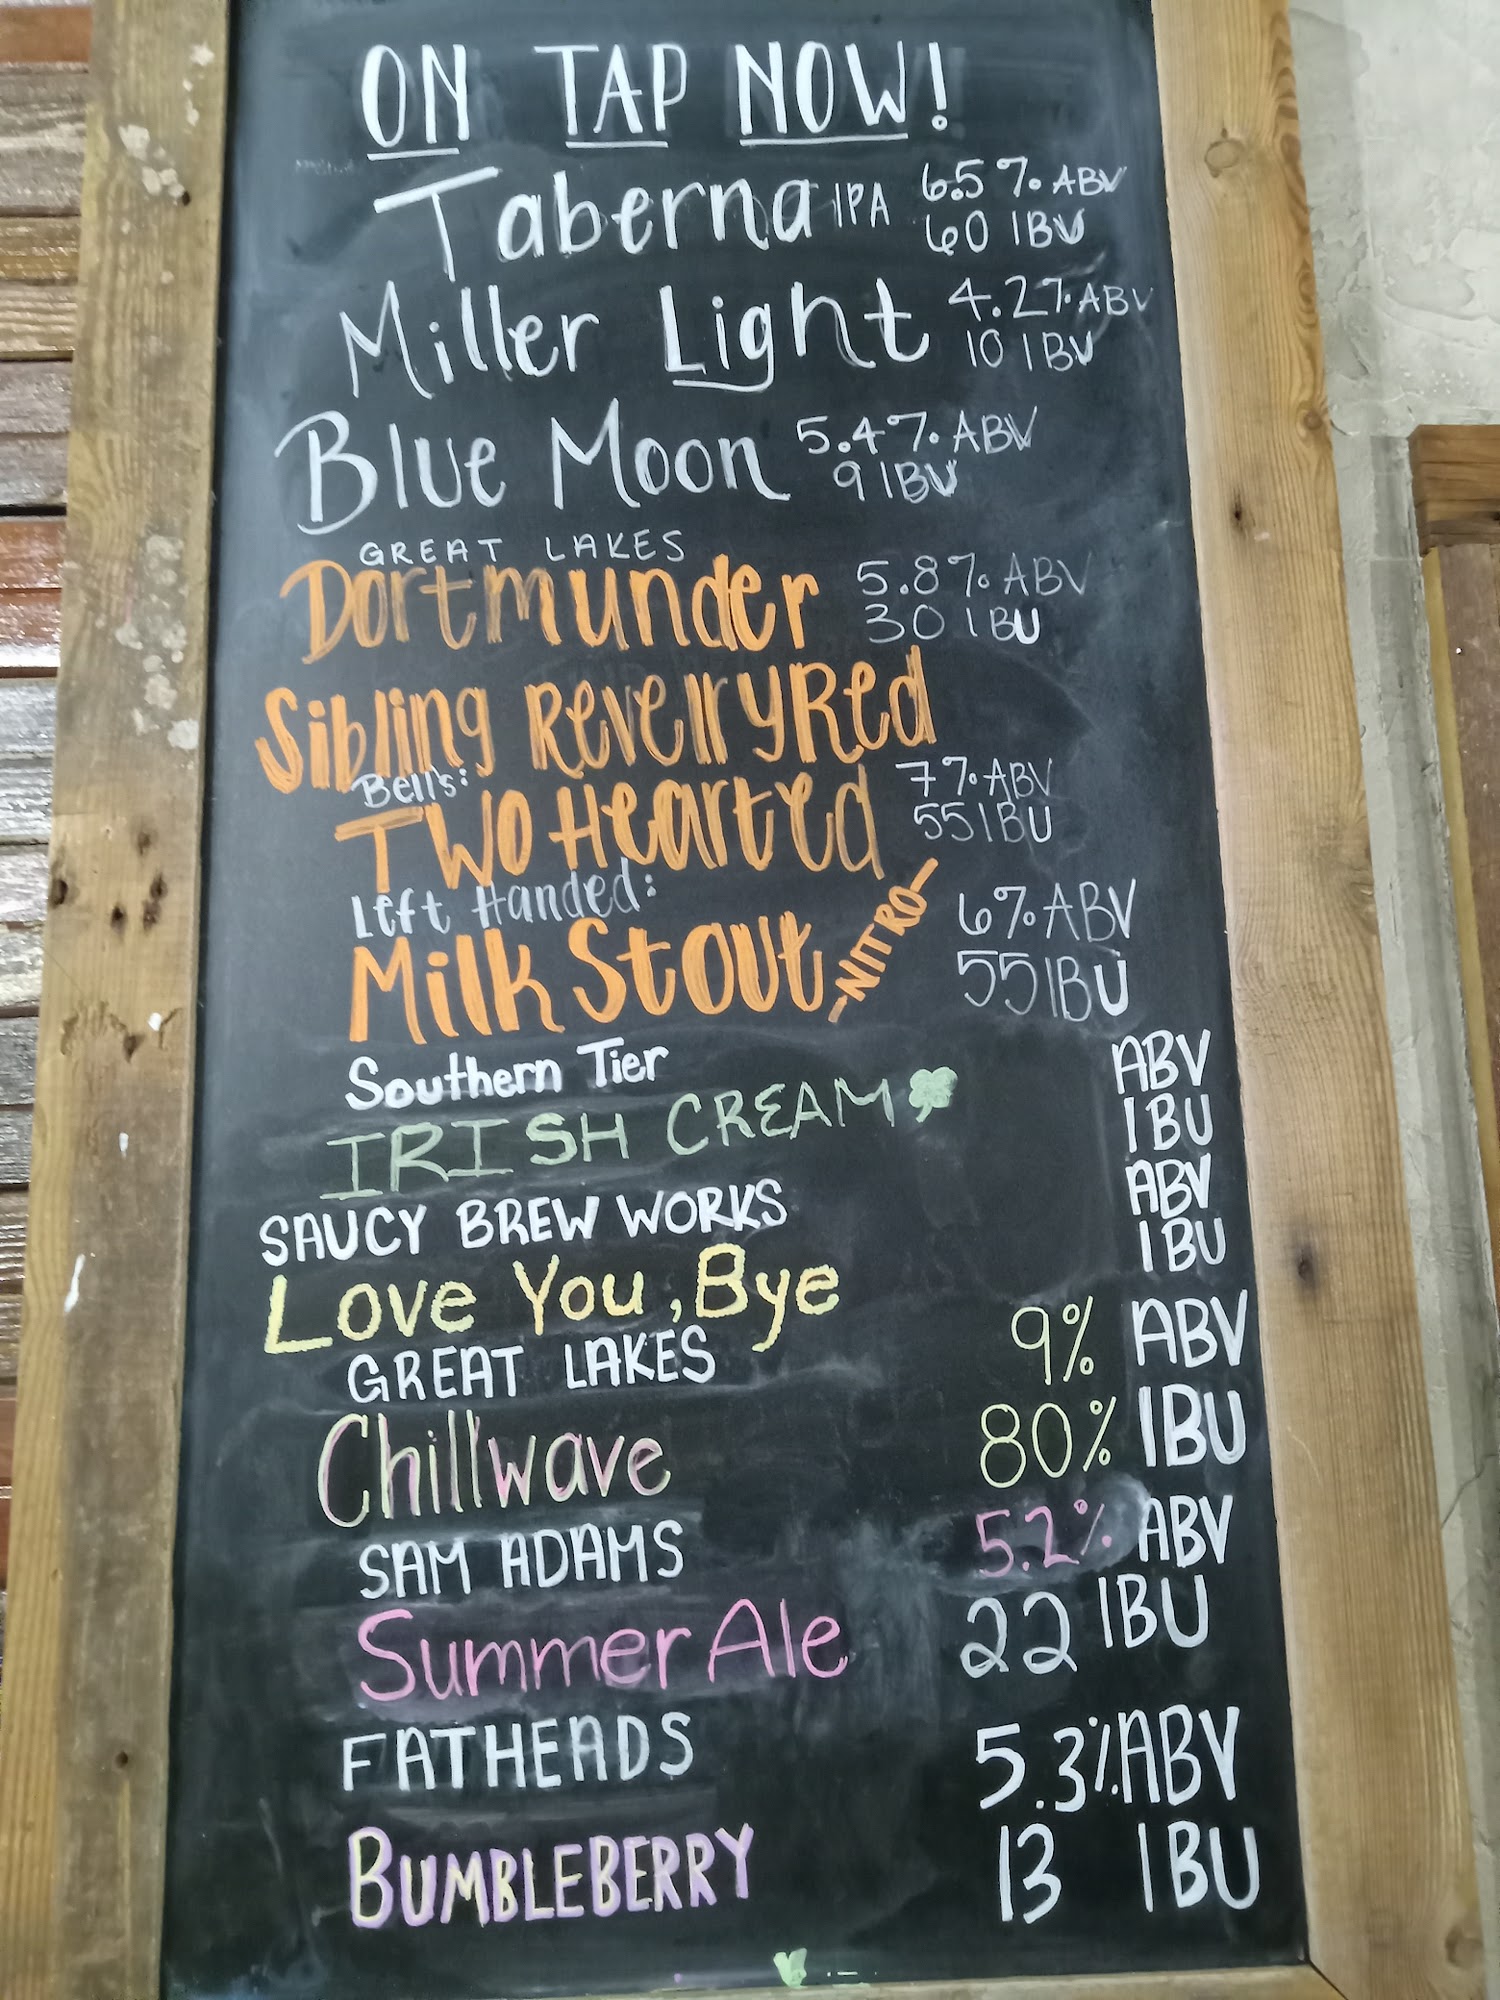 ON TAP NOW!
Taberna IPA 6.5% ABV
60 IBU
Miller Light 4.2% ABV
10 IBU
Blue Moon 5.4% ABV
9 IBU
GREAT LAKES
Dortmunder 5.8% ABV
30 IBU
Sibling Revelry Red
Bell's:
Two Hearted 7% ABV
55 IBU
Left Handed:
Milk Stout -NITRO- 6% ABV
55 IBU
Southern Tier ABV
IRISH CREAM IBU
SAUCY BREW WORKS ABV
IBU
Love You, Bye
GREAT LAKES 9% ABV
Chillwave 80% IBU
SAM ADAMS 5.2% ABV
Summer Ale 22 IBU
FATHEADS 5.3% ABV
BUMBLEBERRY 13 IBU